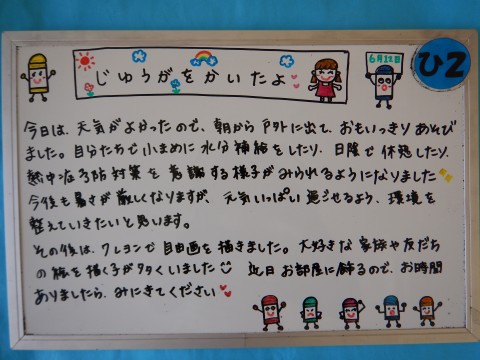 じゆうがをかいたよ
6月12日
ひ2
今日は、天気がよかったので、朝から戸外に出て、おもいっきりあそび
ました。自分たちで小まめに水分補給をしたり、日陰で休憩したり、
熱中症予防対策を意識する様子がみられるようになりました
今後も暑さが厳しくなりますが、元気いっぱい過ごせるよう、環境を
整えていきたいと思います。
その後は、クレヨンで自由画を描きました。大好きな家族や友だち
の顔を描く子が多くいました 近日お部屋に飾るので、お時間
ありましたら、みにきてください